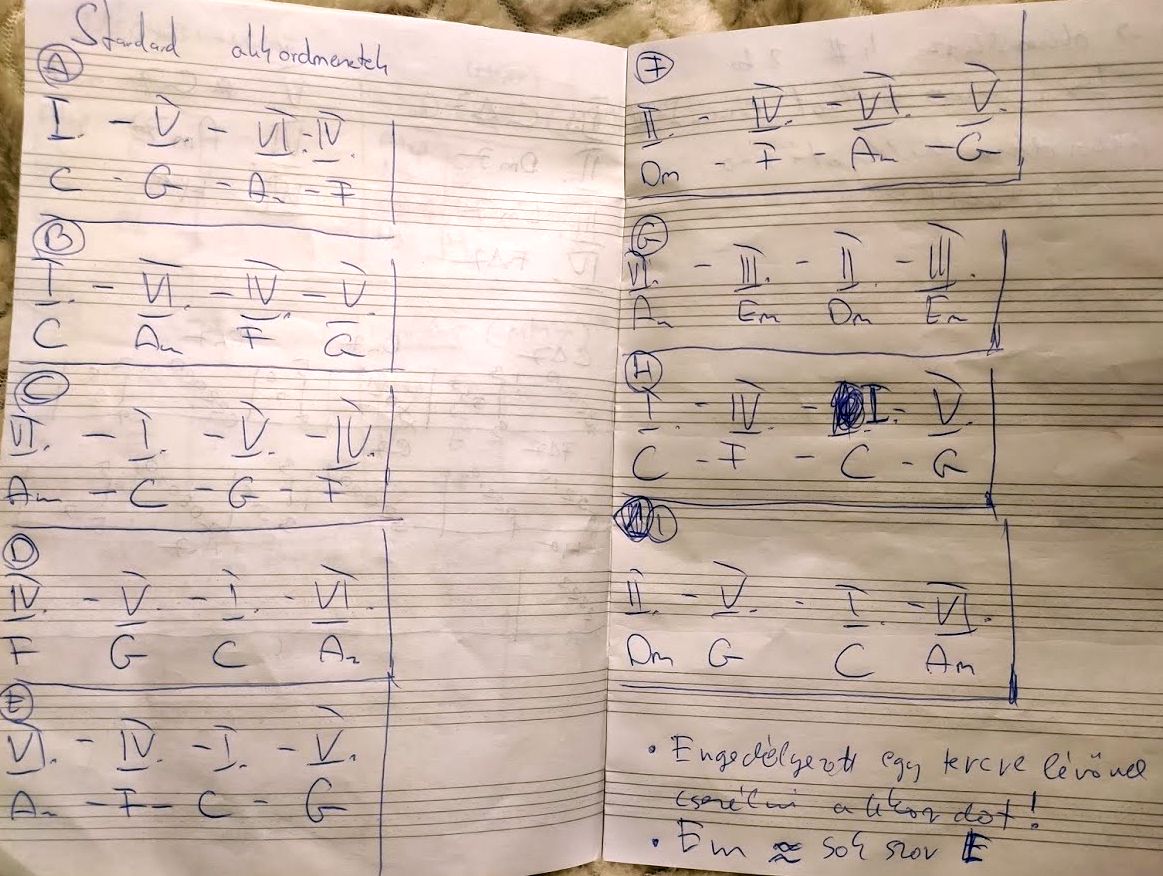 Standard akkordmenetek
A
I. - V. - VI. - IV.
C - G - Am - F
B
I. - VI. - IV. - V.
C Am F G
C
VI. - I. - V. - IV.
Am - C - G - F
D
IV. - V. - I. - VI.
F G C Am
E
VI. - IV. - I. - V.
Am - F - C - G
F
II. - IV. - VI. - V.
Dm - F - Am - G
G
VI. - III. - II. - III.
Am Em Dm Em
H
I. - IV. - I. - V.
C - F - C - G
I
II. - V. - I. - VI.
Dm G C Am
• Engedélyezett egy tercre lévővel
cserélni akkordot!
• Em ≈ sokszor E